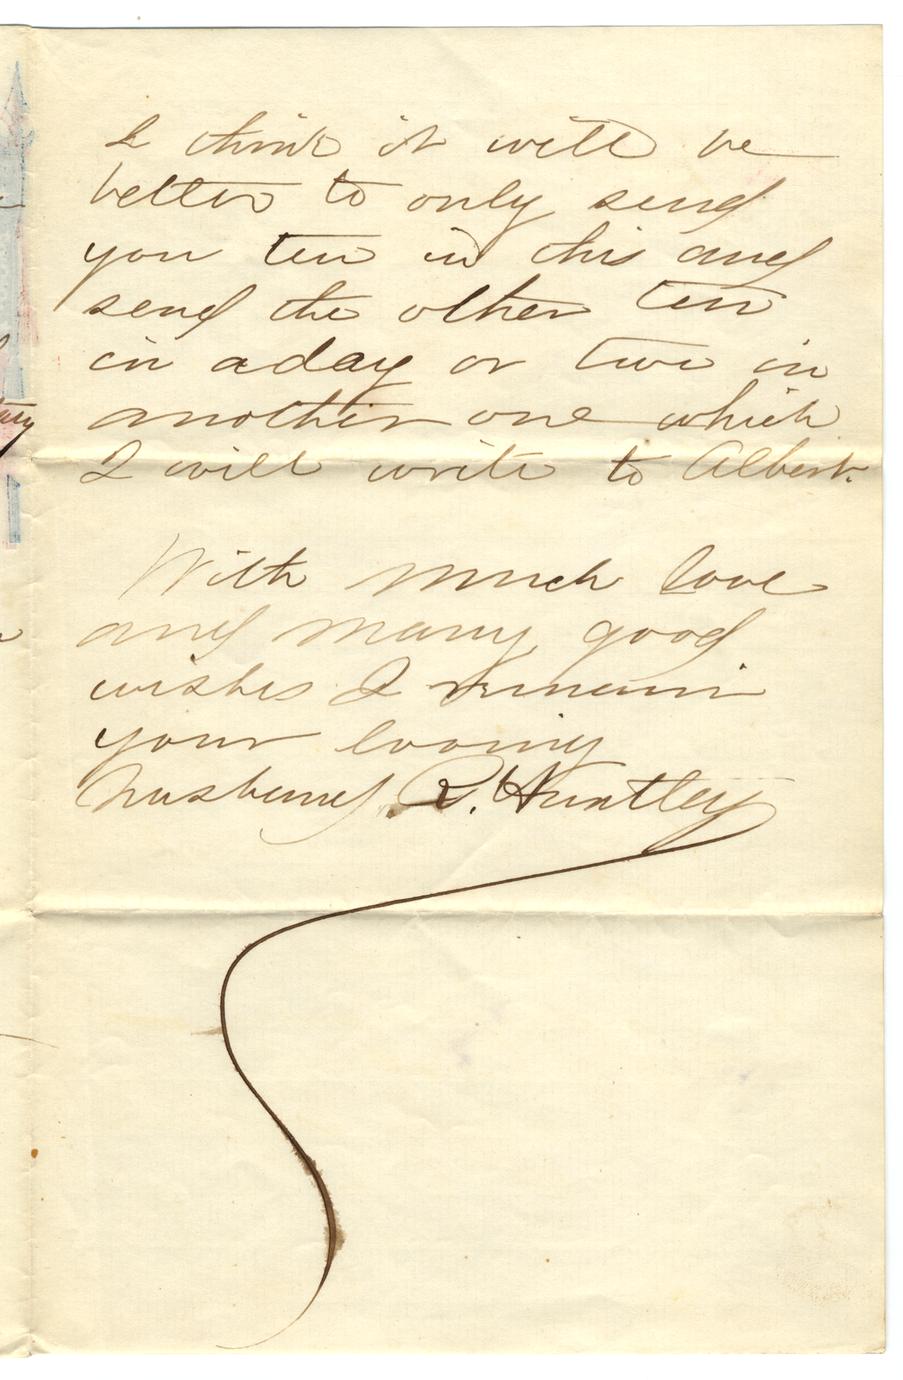 I think it will be
better to only send
you ten in this and
send the other ten
in a day or two in
another one which
I will write to Albert.
With much love
and many good
wishes I remain
your loving
husband. R. Huntley